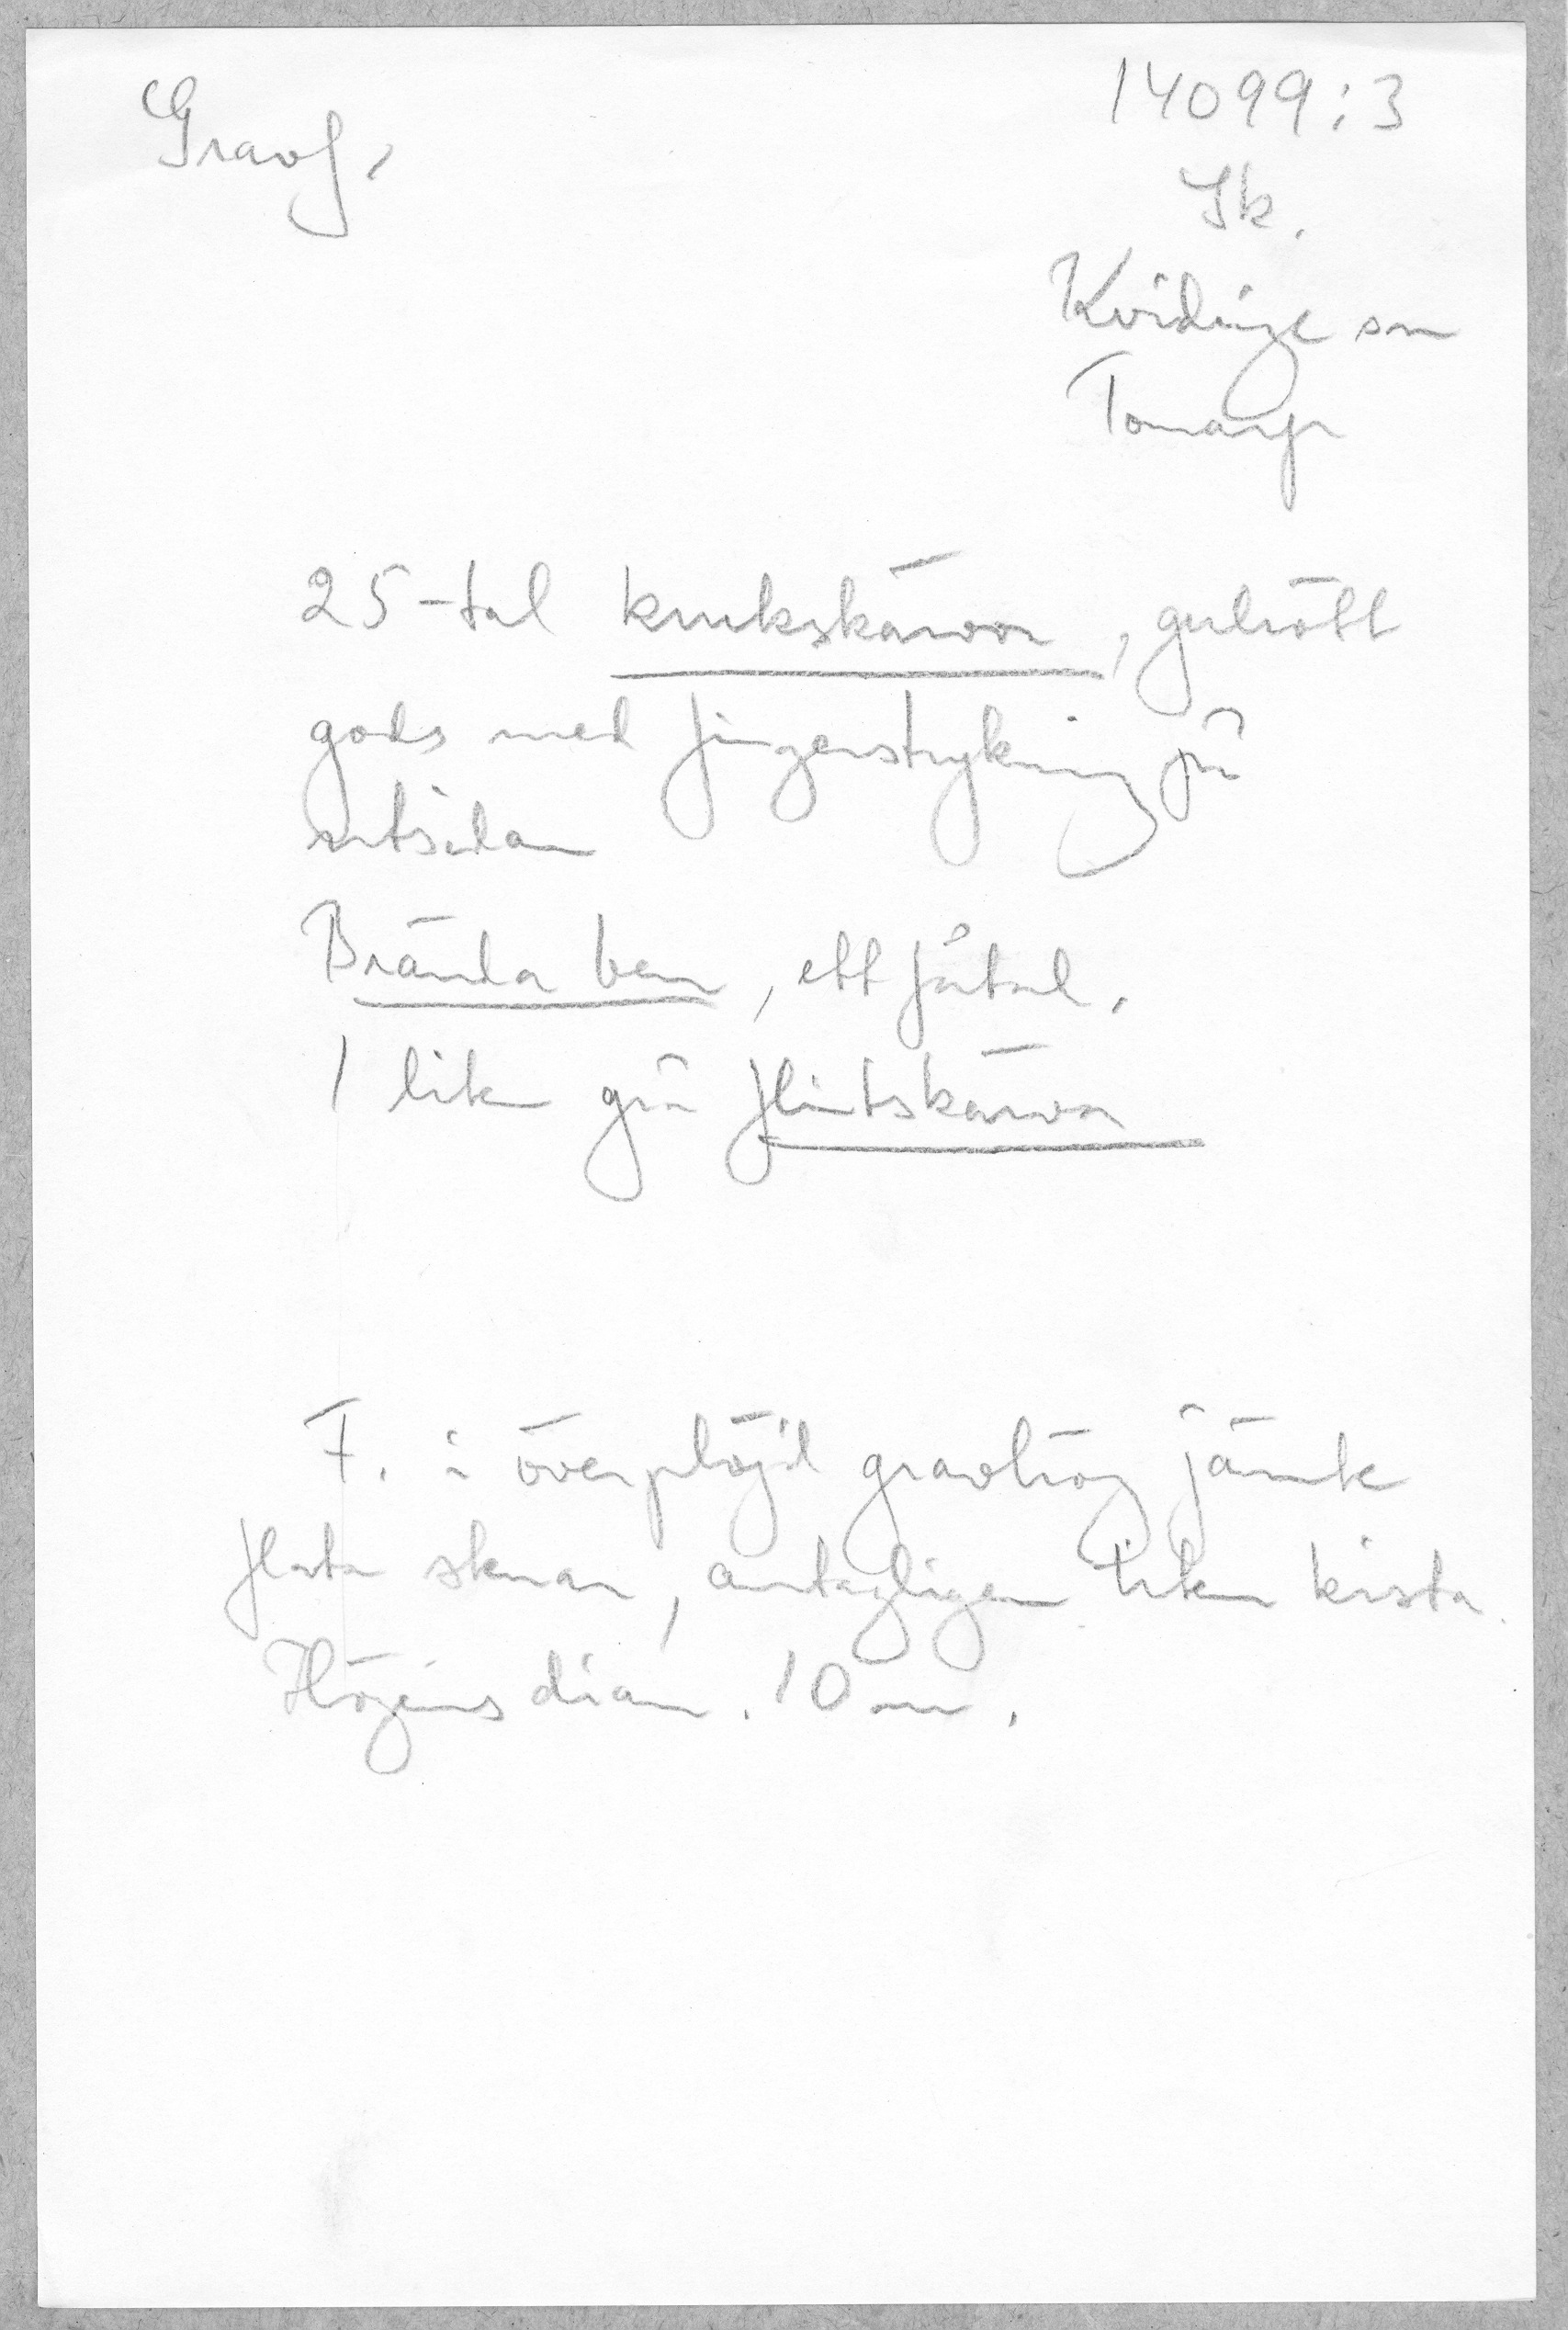 Gravf.
14099:3
Sk.
Kvidinge sn
Tomarp
25-tal krukskärvor, gulrött
gods med fingerstrykning på
utsidan
Brända ben, ett fåtal.
1 liten grå flintskärva
F. i överplöjd gravhög jämte
flata stenar, antagligen liten kista.
Högens diam. 10 m.